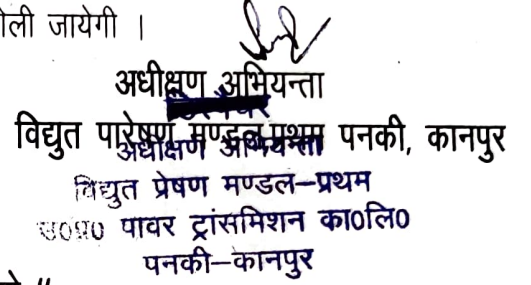 ोली जायेगी ।
अधीक्षण अभियन्ता
विद्युत पारेषण मण्डल प्रथम पनकी, कानपुर
अधीक्षण अभियन्ता
विद्युत प्रेषण मण्डल–प्रथम
उ०प्र० पावर ट्रांसमिशन का०लि०
पनकी–कानपुर